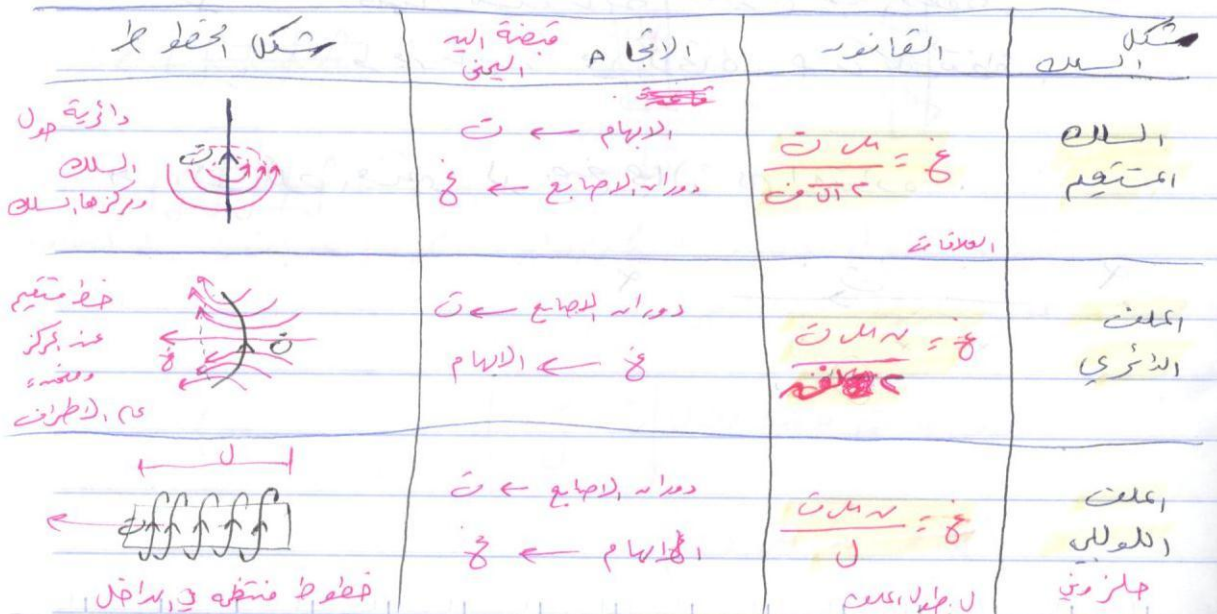 شكل السلك
القانون
الاتجاه قبضة اليد اليمنى
شكل الخطوط
السلك المستقيم
غ = μ ت / ٢ π ف
العلاقات
الابهام ← ت
دوران الاصابع ← غ
دائرية حول
السلك
ومركزها السلك
ت
الملف الدائري
غ = ن μ ت / ٢
دوران الاصابع ← ت
غ ← الابهام
خط مستقيم
عند المركز
الاطراف
غ
ت
الملف اللولبي
حلزوني
غ = ن μ ت / ل
ل: طول الملف
دوران الاصابع ← ت
الابهام ← غ
ل
خطوط منتظمة في الداخل